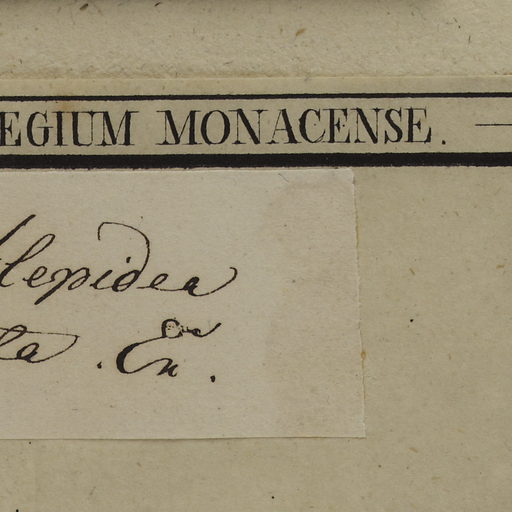 EGIUM MONACENSE.
lepidea
ta . En.